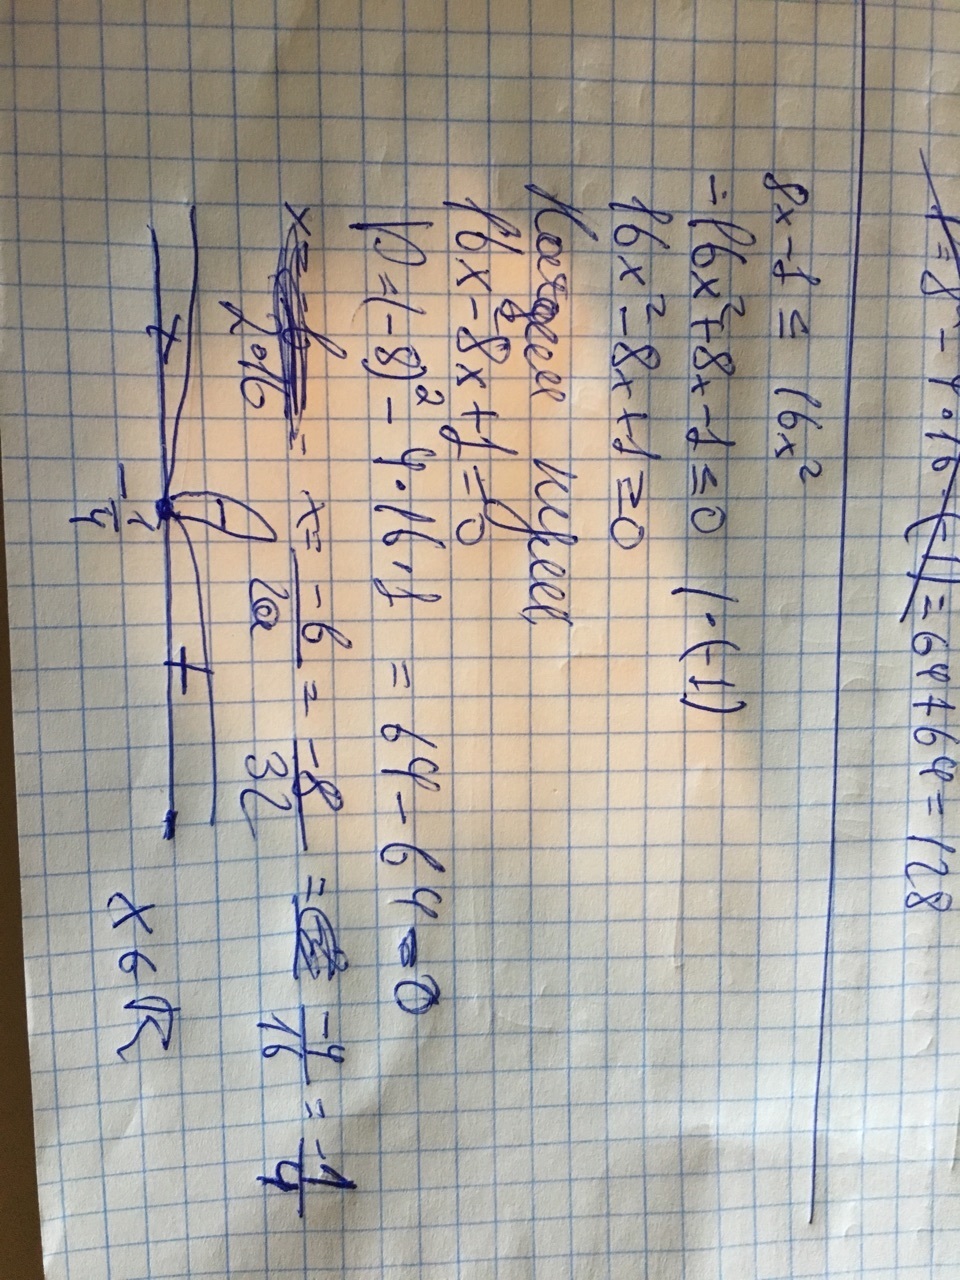 D = 8² - 4·16·(-1) = 64+64 = 128
8x-1 ≤ 16x²
-16x²+8x-1≤0 | ·(-1)
16x²-8x+1≥0
Найдем нули
16x²-8x+1=0
D=(-8)²-4·16·1 = 64-64=0
x = -b / 2·16 = x = -b / 2a = -8 / 32 = -4 / 16 = -1 / 4
+ - +
-1/4
x ∈ R